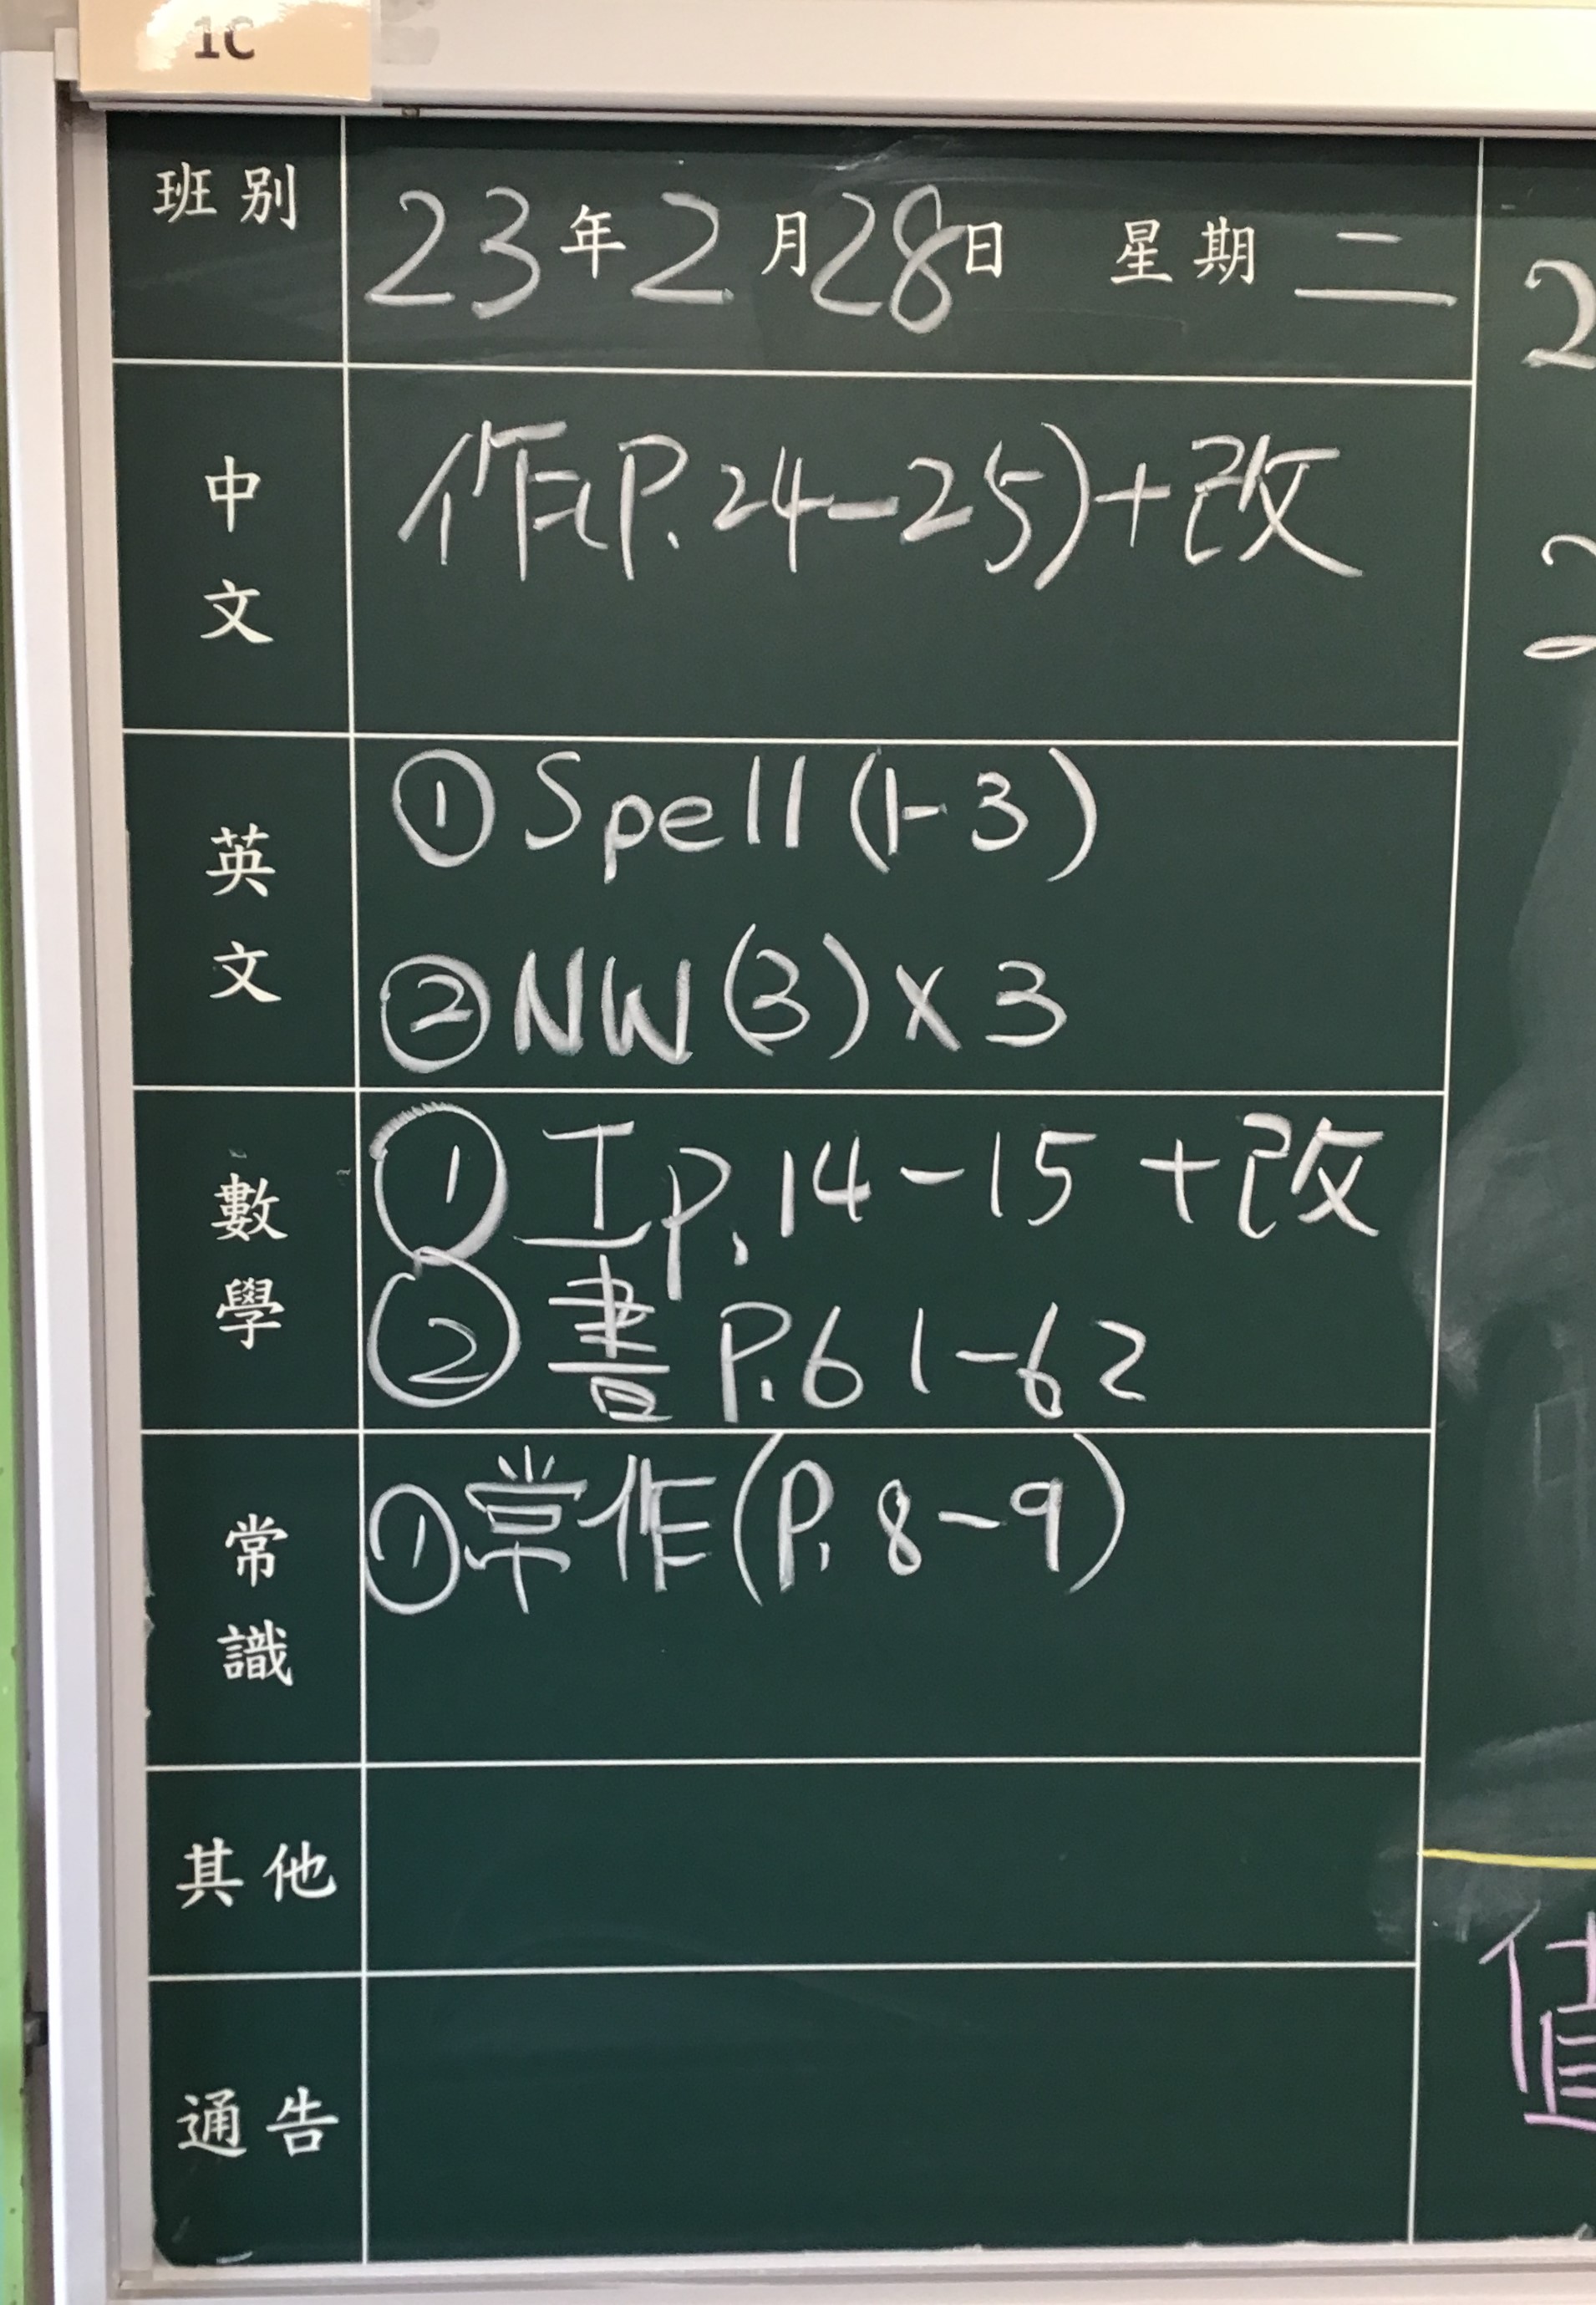 1C
班別 23年2月28日 星期二
中文 作(P.24-25)+改
英文 ①Spell (1-3)
②NW(3)×3
數學 ①工P.14-15+改
②書P.61-62
常識 ①常作(P.8-9)
其他
通告
值